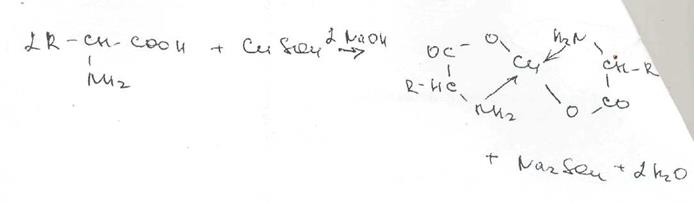 2R-CH-COOH + CuSO4 2NaOH →
NH2
OC - O Cu H2N
CH-R
R-HC NH2 O CO
+ Na2SO4 + 2H2O